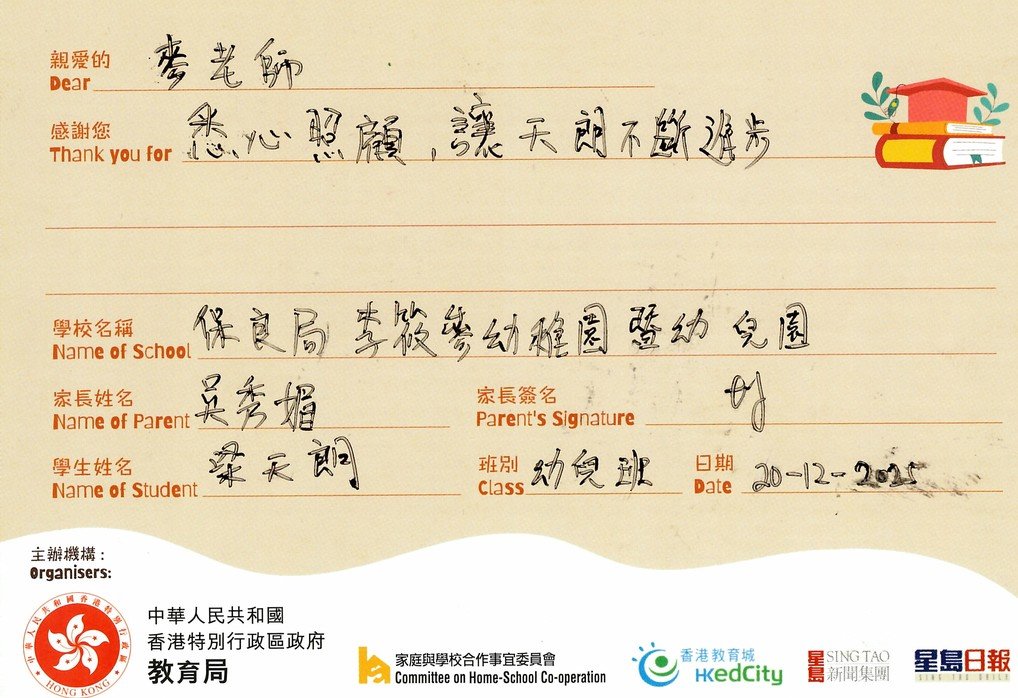 親愛的 麥老師
Dear
感謝您 悉心照顧,讓天朗不斷進步
Thank you for
學校名稱 保良局李筱麥幼稚園暨幼兒園
Name of School
家長姓名 吳秀媚 家長簽名
Name of Parent Parent's Signature
學生姓名 梁天朗 班別 幼兒班 日期 20-12-2025
Name of Student Class Date
主辦機構:
Organisers:
中華人民共和國香港特別行政區
HONG KONG
中華人民共和國
香港特別行政區政府
教育局
家庭與學校合作事宜委員會
Committee on Home-School Co-operation
香港教育城
HKedCity
星島 SING TAO
新聞集團
星島日報
SING TAO DAILY